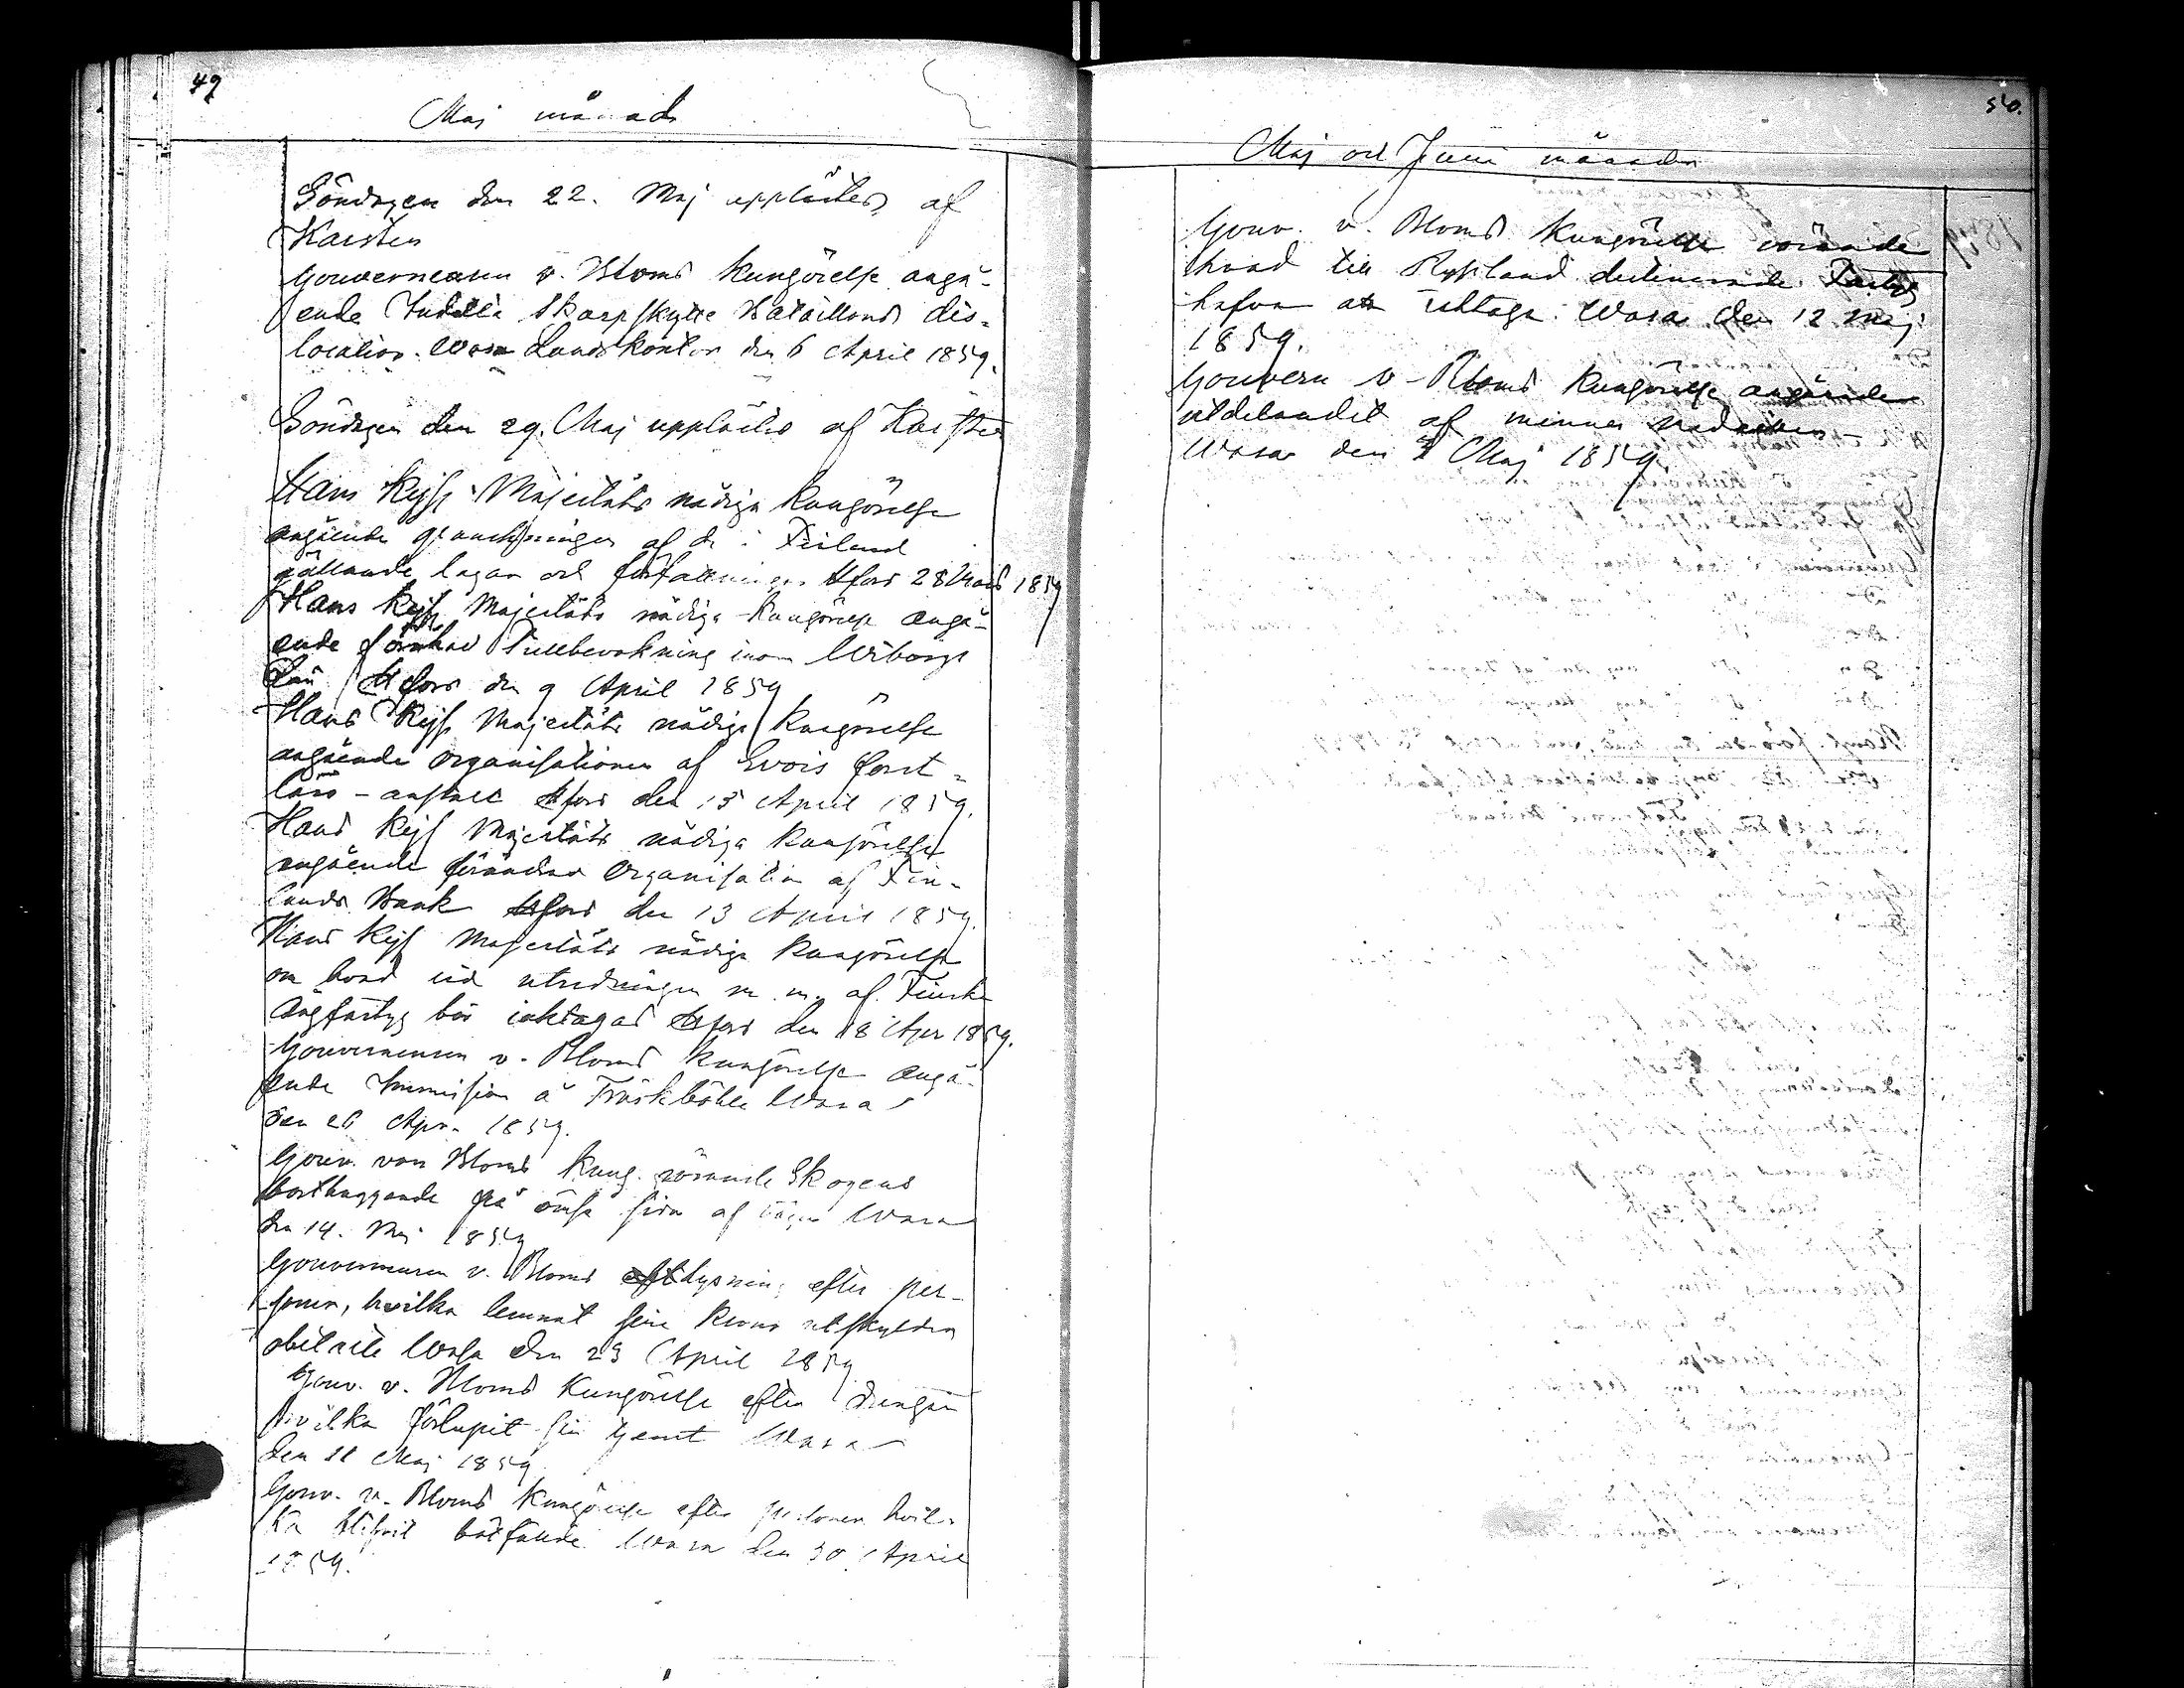 49
Maj månad
Söndagen den 22. Maj upplästes af
Karsten
Gouverneuren v. Bloms Kungörelse angå-
ende Indelta Skarpskytte Bataillons dis-
location. Wasa Landskontor den 6 April 1859.
Söndagen den 29. Maj upplästes af Karsten
Hans Kejs Majestäts nådiga Kungörelse
angående granskningen af de i Finland
gällande lagar och författningar Hfors 28 Mars 1859
Hans Kejs Majestäts nådiga Kungörelse angå-
ende förändrad Tullbevakning inom Wiborgs
Län Hfors den 9 April 1859
Hans Kejs Majestäts nådiga Kungörelse
angående organisationen af Evois forst-
läro-anstalt Hfors den 13 April 1859.
Hans Kejs Majestäts nådiga Kungörelse
angående förändrad Organisation af Fin-
lands Bank Hfors den 13 April 1859.
Hans Kejs Majestäts nådiga Kungörelse
om hvad vid utredningen m. m. af Finska
Ångfartyg bör iakttagas Hfors den 18 Apr 1859.
Gouverneuren v. Bloms Kungörelse angå-
ende Immission å Träskböle Wasa
den 26 Apr. 1859.
Gouv. von Bloms Kung. rörande Skogens
borthuggande på ömse sidor af vägen Wasa
den 14. Maj 1859
Gouverneuren v. Bloms efterlysning efter per-
soner, hvilka lemnat sine Krono utskylder
obetalte Wasa den 23 April 1859
Gouv. v. Bloms Kungörelse efter Drengar
hvilka förlupit sin tjenst Wasa
den 11 Maj 1859
Gouv. v. Bloms Kungörelse efter personer hvil-
ka blifvit bötfällde Wasa den 30 April
1859.
50.
Maj och Juni månader
Gouv. v. Bloms Kungörelse rörande
hvad till Ryssland destinerade Fartyg
hafva att iakttaga. Wasa den 12 Maj
1859.
Gouvern v. Bloms Kungörelse angående
utdelandet af minnes medailler
Wasa den 7 Maj 1859.